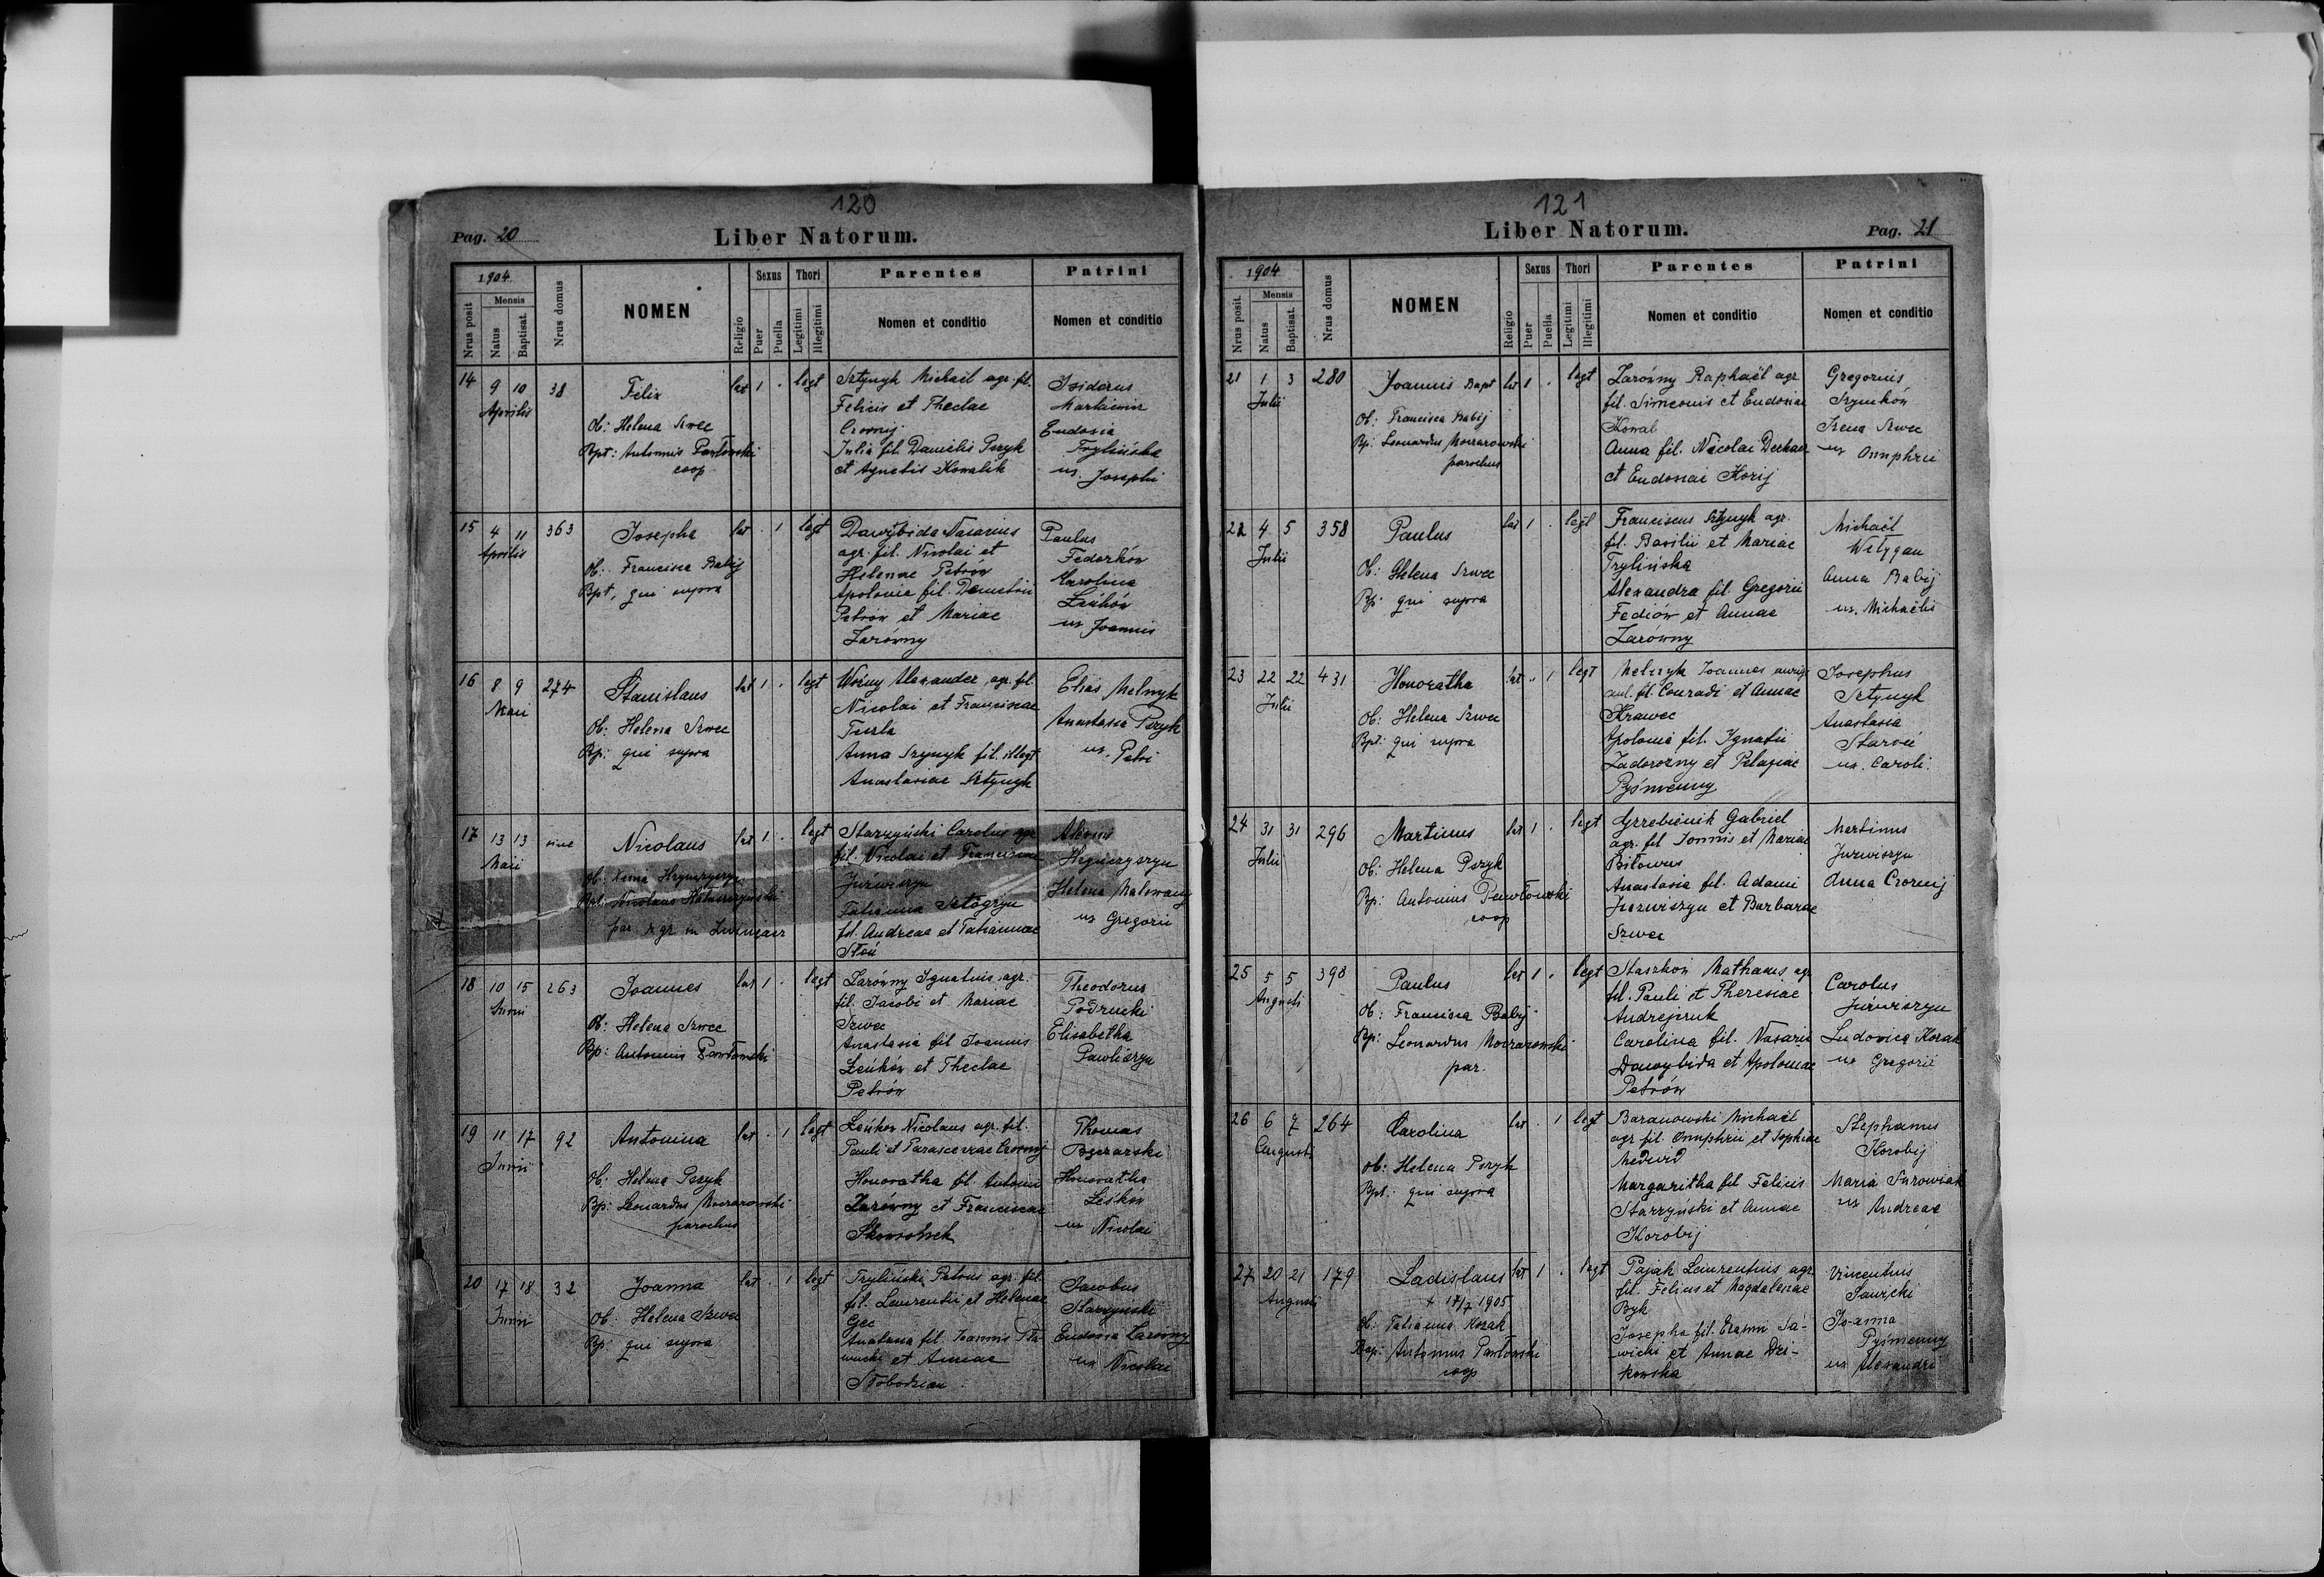 120
Pag. 20
Liber Natorum.
1904
Nrus posit
Mensis
Natus
Baptisat.
Nrus domus
NOMEN
Religio
Sexus
Puer
Puella
Thori
Legitimi
Illegitimi
Parentes
Nomen et conditio
Patrini
Nomen et conditio
14 9 10 38 Felix lat 1 . legt
Aprilis
Ob: Helena Szwec
Bpt: Antonius Pawłowski
coop
Sztynyk Michaël agr. fil.
Felicis et Theclae
Czornij
Julia fil. Danielis Pszyk
et Agnetis Kowalik
Isidorus
Eudosia
Trylińska
ux. Josephi
15 4 11 363 Josepha lat . 1 legt
Aprilis
Ob: Francisca Babij
Bpt, qui supra
Dawybida Nasarius
agr. fil. Nicolai et
Helenae Petrów
Apolonia fil. Demetrii
Petrów et Mariae
Zarówny
Paulus
Fedorków
Karolina
Leńków
ux Joannis
16 8 9 274 Stanislaus lat 1 . legt
Maii
Ob: Helena Szwec
Bp: qui supra
Woźny Alexander agr. fil.
Nicolai et Franciscae
Anna Sztynyk fil. illegt
Anastasiae Sztynyk
Elias Melnyk
Anastasia Pszyk
ux. Petri
17 13 13 sine Nicolaus lat 1 . legt
Maii
Ob: Xenia
Bpt: Nicolaus
par. r. gr. in
Starzyński Carolus agr
fil. Nicolai et Franciscae
Juzwiszyn
Tatianna
fil. Andreae et Tatiannae
Alexius
Helena
ux Gregorii
18 10 15 263 Joannes lat 1 . legt
Junii
Ob: Helena Szwec
Bp: Antonius Pawłowski
Zarówny Ignatius agr.
fil. Jacobi et Mariae
Szwec
Anastasia fil Joannis
Leńków et Theclae
Petrów
Theodorus
Podrucki
Elisabetha
Pawliszyn
19 11 17 92 Antonina lat . 1 legt
Junii
Ob: Helena Pszyk
Bp: Leonardus Moczarowski
parochus
Leńków Nicolaus agr. fil.
Pauli et Parascevae Czornij
Honoratha fil. Antonii
Zarówny et Franciscae
Thomas
Honoratha
Leśków
ux Nicolai
20 17 18 32 Joanna lat . 1 legt
Junii
Ob: Helena Szwec
Bp qui supra
Tryliński Petrus agr. fil.
fil. Laurentii et Helenae
Gec
fil. Joannis
et Annae
Słobodzian
Jacobus
Starzyński
Eudosia Zarówny
ux Nicolai
121
Liber Natorum.
Pag. 21
1904
Nrus posit.
Mensis
Natus
Baptisat.
Nrus domus
NOMEN
Religio
Sexus
Puer
Puella
Thori
Legitimi
Illegitimi
Parentes
Nomen et conditio
Patrini
Nomen et conditio
21 1 3 280 Joannis Bapt lat 1 . legt
Julii
Ob: Francisca Babij
Bp: Leonardus Moczarowski
parochus
Zarówny Raphaël agr
fil. Simeonis et Eudosiae
Kowal
Anna fil. Nicolai
et Eudosiae
Gregorius
Szymków
Irena Szwec
ux Onuphrii
22 4 5 358 Paulus lat 1 . legt
Julii
Ob: Helena Szwec
Bp: qui supra
Franciscus Sztynyk agr.
fil. Basilii et Mariae
Trylińska
Alexandra fil. Gregorii
Fediów et Annae
Zarówny
Michaël
Wełygan
Anna Babij
ux. Michaëlis
23 22 22 431 Honoratha lat . 1 legt
Julii
Ob: Helena Szwec
Bpt: qui supra
Melnyk Joannes
fil. Conradi et Annae
Krawec
Apolonia fil. Ignatii
Zadorozny et Pelagiae
Pyśmenny
Josephus
Sztynyk
Anastasia
ux. Caroli
24 31 31 296 Martinus lat 1 . legt
Julii
Ob: Helena Pszyk
Bp: Antonius Pawłowski
coop
Grzebienik Gabriel
agr. fil Joannis et Mariae
Biłowus
Anastasia fil. Adami
Juzwiszyn et Barbarae
Szwec
Martinus
Juzwiszyn
Anna Czornij
25 5 5 398 Paulus lat 1 . legt
Augusti
Ob: Francisca Babij
Bp: Leonardus Moczarowski
par.
Staszków Mathaus agr
fil. Pauli et Theresiae
Andrejczuk
Carolina fil. Nasarii
Dawybida et Apoloniae
Petrów
Carolus
Juzwiszyn
Ludovica Kozak
ux Gregorii
26 6 7 264 Carolina lat . 1 legt
Augusti
Ob: Helena Pszyk
Bpt: qui supra
Baranowski Michaël
agr. fil. Onuphrii et Sophiae
Medwid
Margaritha fil Felicis
Starzyński et Annae
Korobij
Stephanus
Korobij
Maria Surowiak
ux Andreae
27 20 21 179 Ladislaus lat 1 . legt
Augusti
+ 17/7 1905
Ob: Tatianna Kozak
Bap: Antonius Pawłowski
coop
Pająk Laurentius agr
fil. Felicis et Magdalenae
Byk
Josepha fil. Erasmi Sa-
wicki et Annae Dzi-
kowska
Vincentius
Sawicki
Joanna
Pyśmenny
ux Alexandri